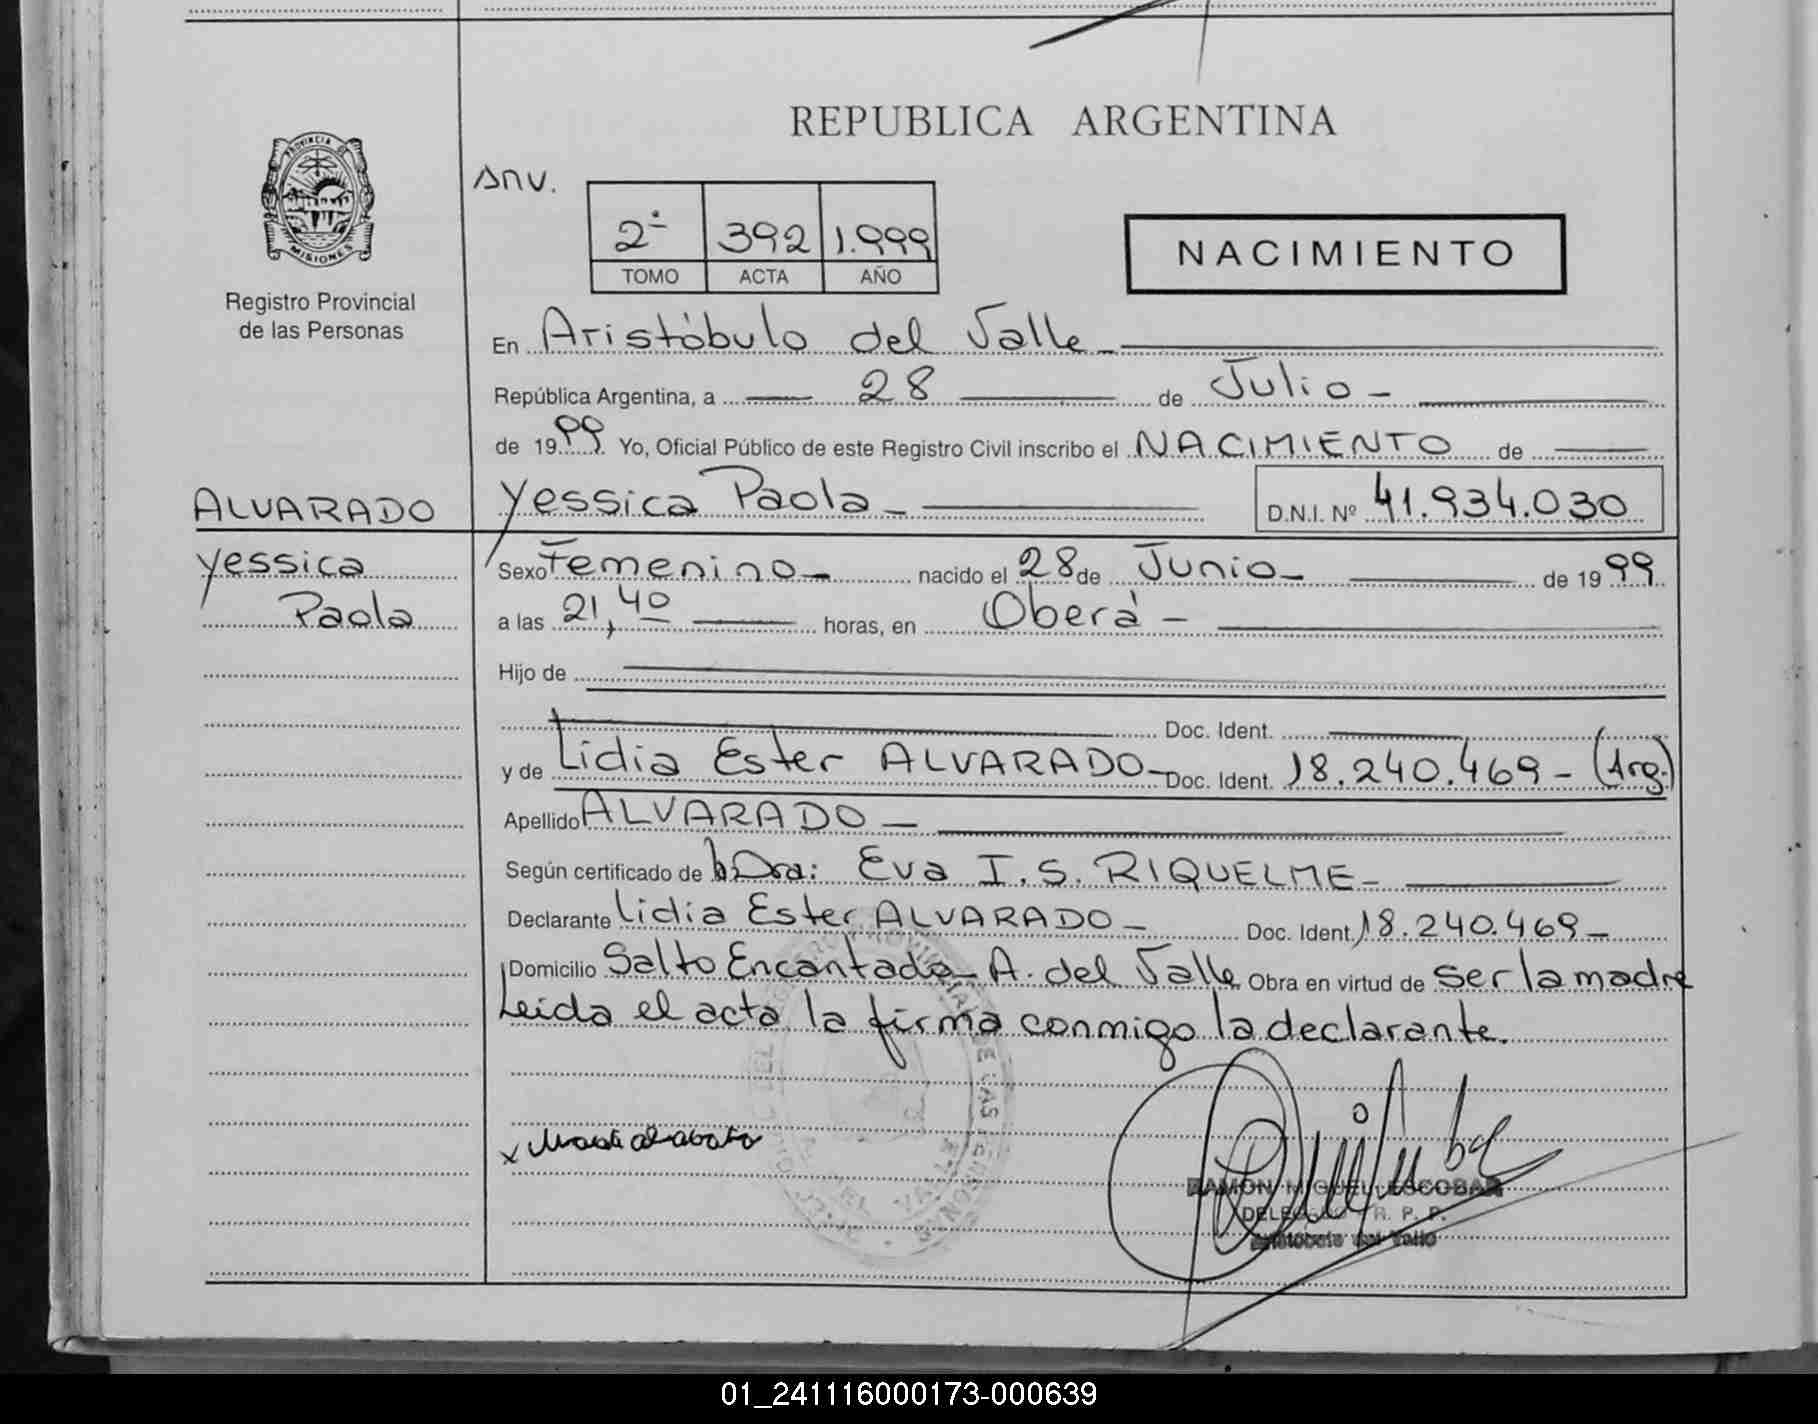 REPUBLICA ARGENTINA
PROVINCIA DE
MISIONES
Registro Provincial
de las Personas
Anv.
2º 392 1.999
TOMO ACTA AÑO
NACIMIENTO
En Aristóbulo del Valle
República Argentina, a 28 de Julio
de 1999 Yo, Oficial Público de este Registro Civil inscribo el NACIMIENTO de
ALVARADO Yessica Paola D.N.I. Nº 41.934.030
Yessica Sexo Femenino nacido el 28 de Junio de 1999
Paola a las 21,40 horas, en Oberá
Hijo de
Doc. Ident.
y de Lidia Ester ALVARADO Doc. Ident. 18.240.469 - (Arg.)
Apellido ALVARADO
Según certificado de Dra: Eva I. S. RIQUELME
Declarante Lidia Ester ALVARADO Doc. Ident. 18.240.469
Domicilio Salto Encantado - A. del Valle Obra en virtud de ser la madre
Leida el acta la firma conmigo la declarante.
RAMON MIGUEL ESCOBAR
DELEGADO R. P. P.
Aristóbulo del Valle
01_241116000173-000639